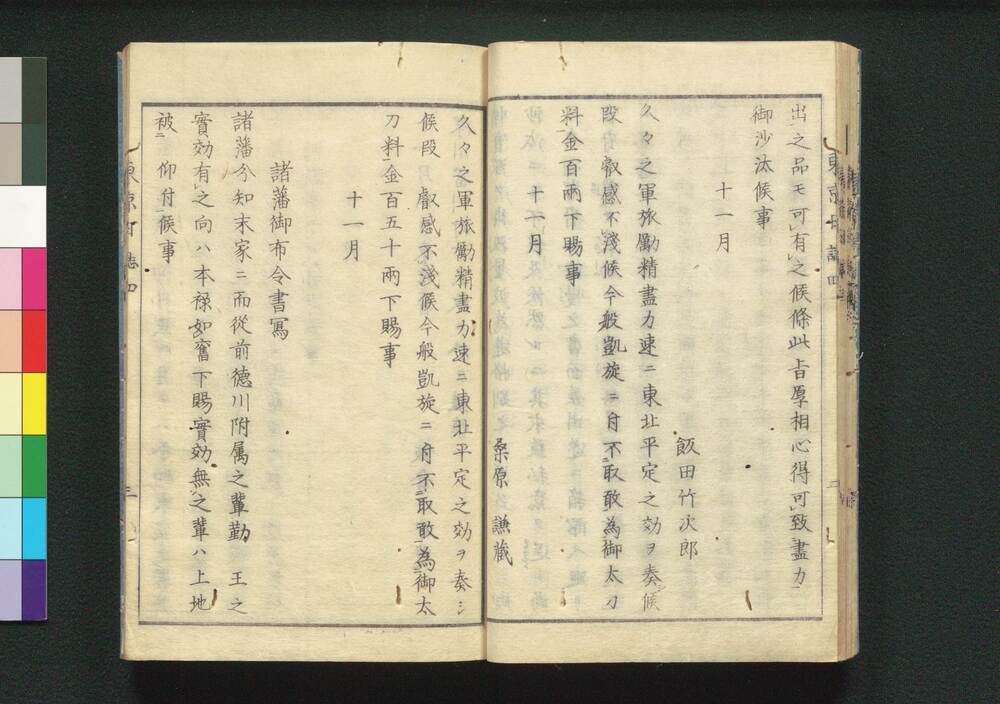 出之品モ可有之候條此旨厚相心得可致盡力
御沙汰候事
十一月
飯田竹次郎
久々之軍旅勵精盡力速ニ東北平定之効ヲ奏候
段 叡感不淺候今般凱旋ニ付不取敢為御太刀
料金百兩下賜事
十一月
桑原謙藏
久々之軍旅勵精盡力速ニ東北平定之効ヲ奏シ
候段 叡感不淺候今般凱旋ニ付不取敢為御太
刀料金百五十兩下賜事
十一月
諸藩御布令書寫
諸藩分知末家ニ而從前德川附属之輩勤 王之
實効有之向ハ本祿如舊下賜實効無之輩ハ上地
被 仰付候事
東京 誌四
三